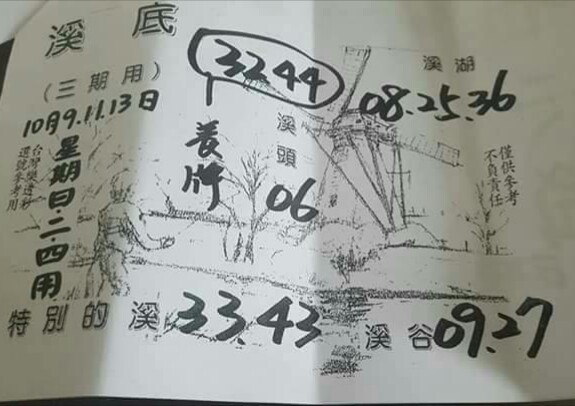 溪底
(三期用)
10月9.11.13日
星期日.二.四用
台灣樂透彩
選號參考用
3244
養牌
溪頭
06
溪湖
08.25.36
僅供參考
不負責任
特別的溪33.43
溪谷09.27